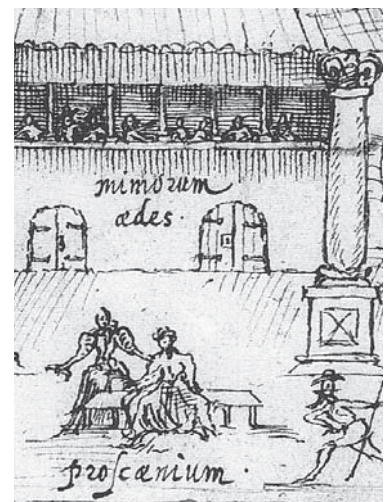 mimorum
ædes.
proscænium.